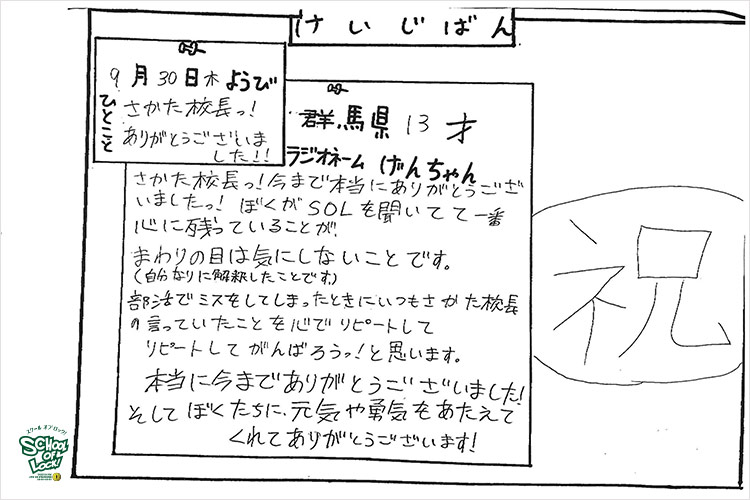 けいじばん
9月30日木ようび
ひとこそ
さかた校長っ!
ありがとうございま
した!!
群馬県 13才
ラジオネーム げんちゃん
さかた校長っ!今まで本当にありがとうござ
いましたっ! ぼくがSOLを聞いてて一番
心に残っていることが、
まわりの目は気にしないことです。
(自分なりに解釈したことです)
部活でミスをしてしまったときにいつもさかた校長
の言っていたことを心でリピートして
リピートしてがんばろうっ!と思います。
本当に今までありがとうございました!
そしてぼくたちに、元気や勇気をあたえて
くれてありがとうございます!
祝
スクール オブ ロック!
SCHOOL
OF
LOCK!